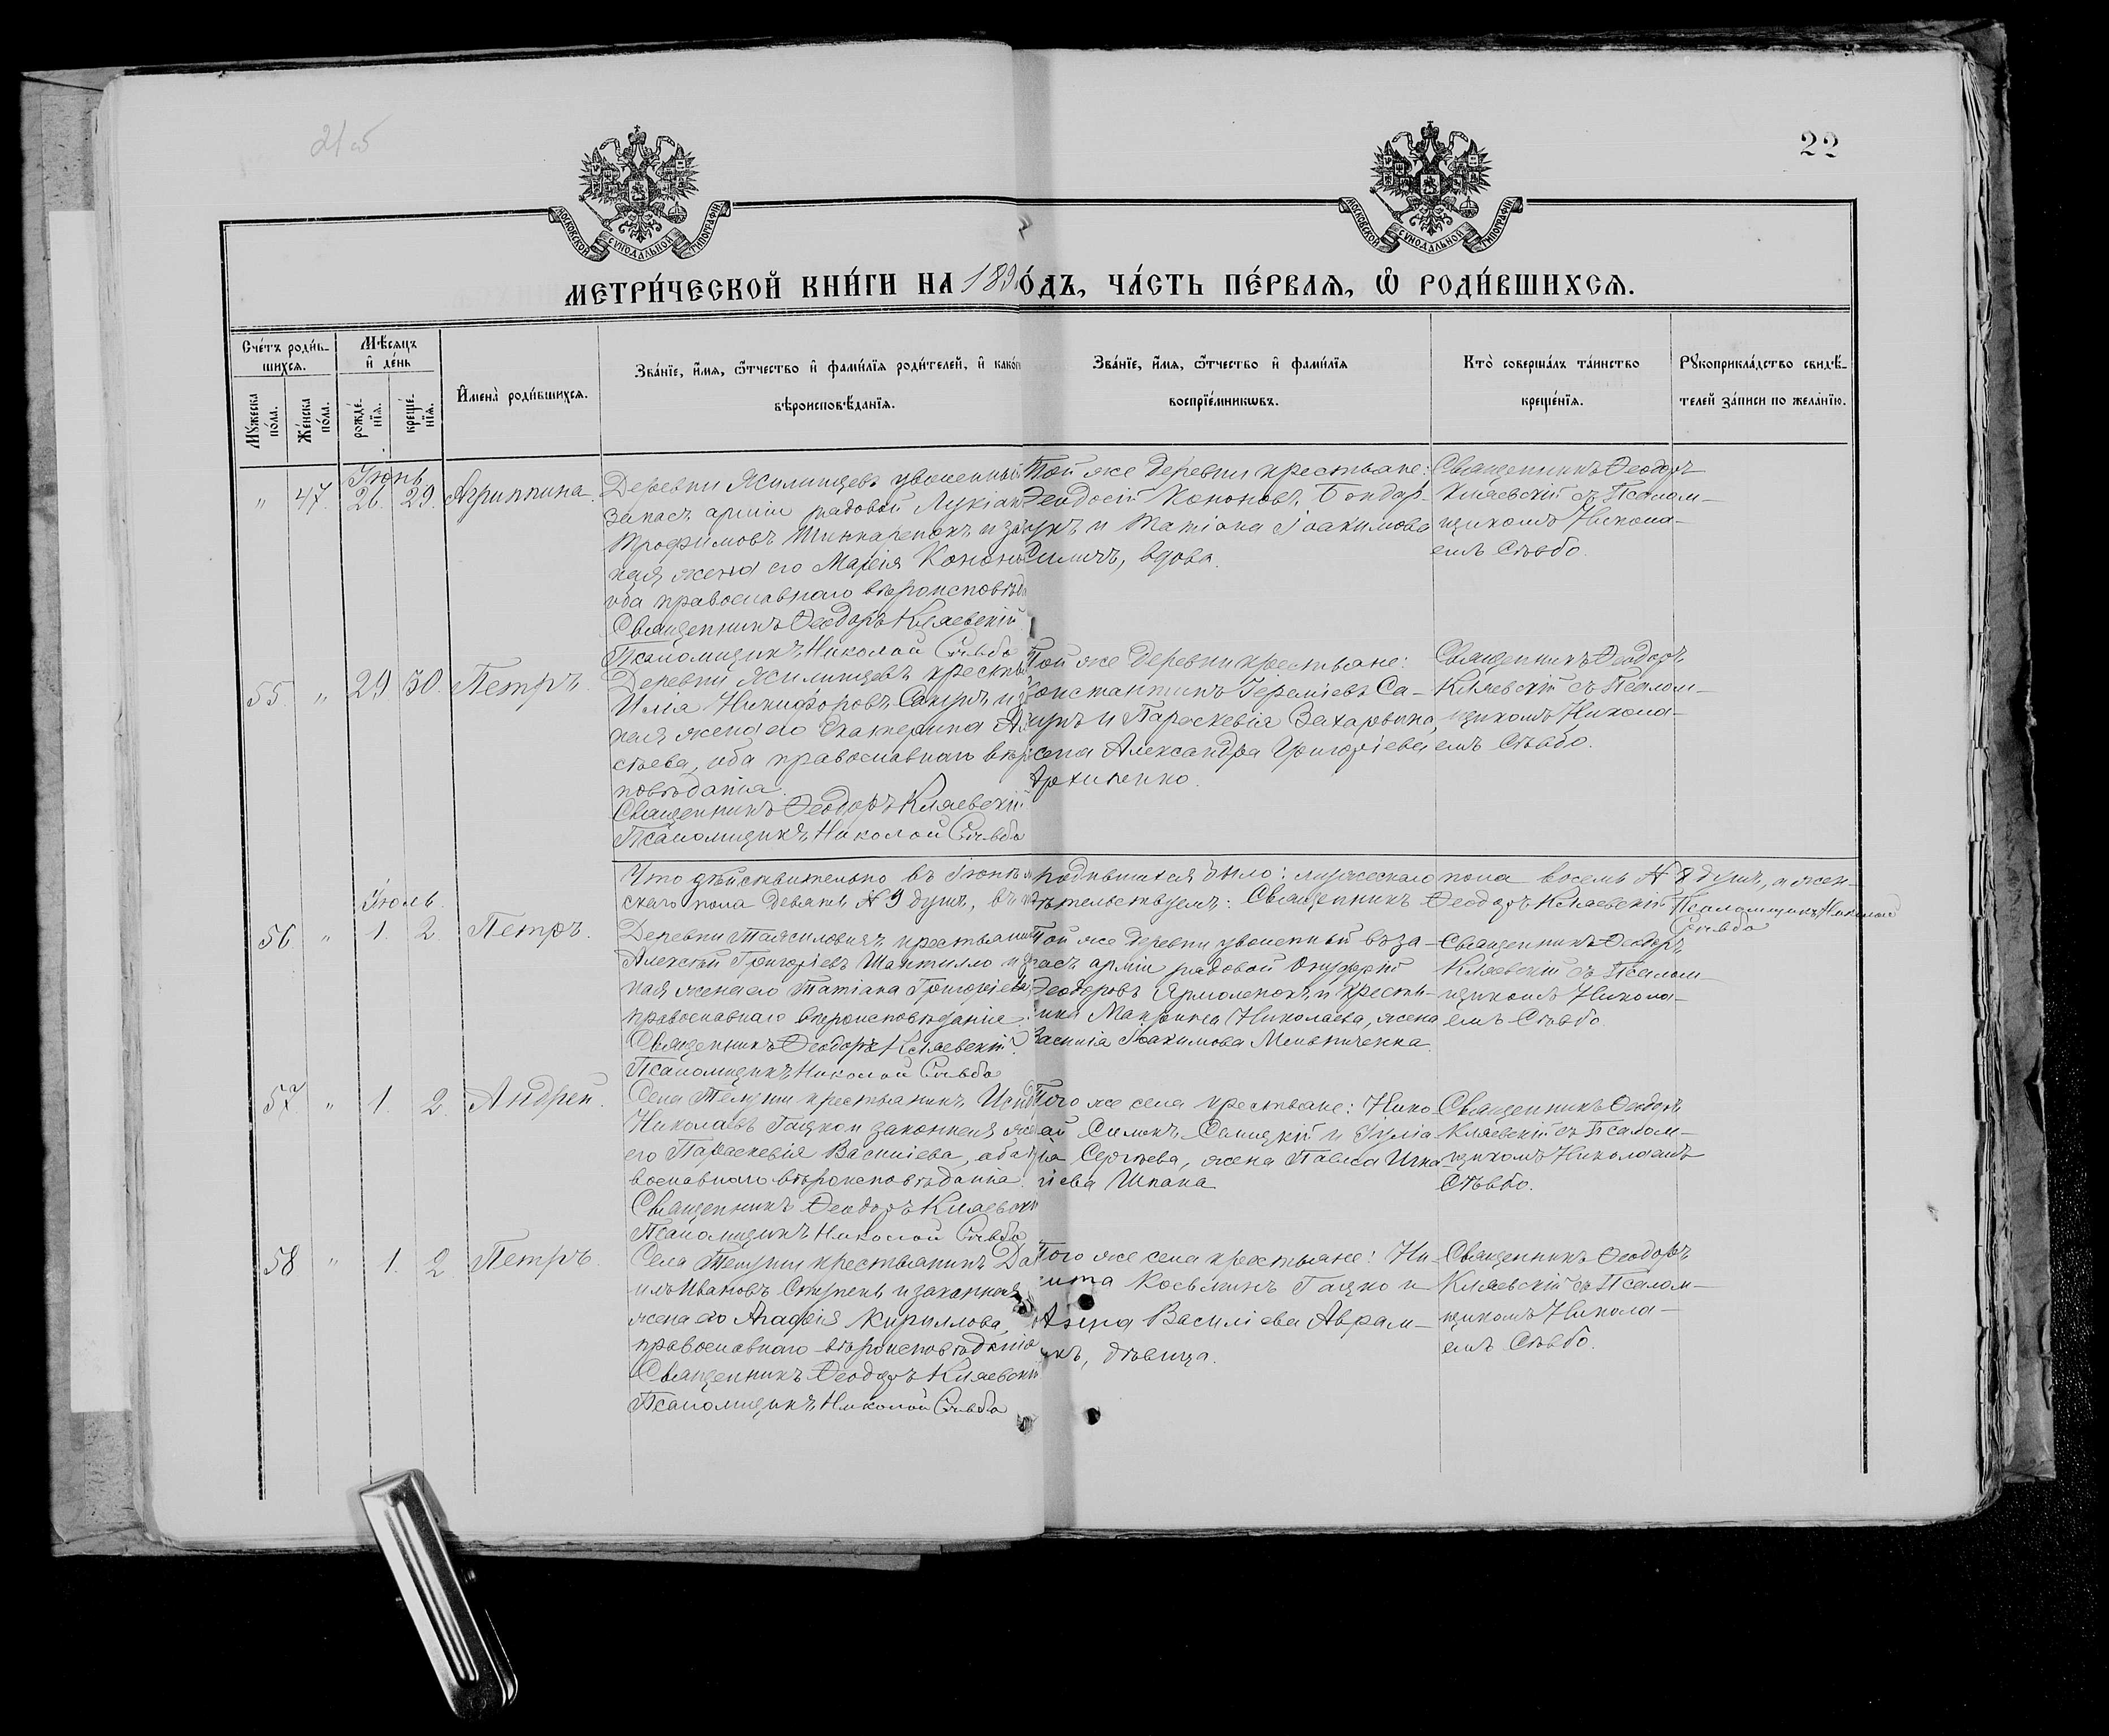 21 об
22
МОСКОВСКОЙ СУНОДАЛЬНОЙ ТИПОГРАФІИ
МОСКОВСКОЙ СУНОДАЛЬНОЙ ТИПОГРАФІИ
МЕТРИ́ЧЕСКОЙ КНИ́ГИ НА 189 О́ДЪ, ЧА́СТЬ ПЕ́РВАѦ, Ѽ РОДИ́ВШИХСѦ.
Сче́тъ роди́в-
шихся.
Мꙋ́жеска по́ла.
Же́нска по́ла.
Мѣ́сяцъ
и҆ де́нь
рожде́-
нїѧ.
креще́-
нїѧ.
И҆мена̀ роди́вшихсѧ.
Зва́нїе, и҆́мѧ, ѻ҆́тчество и҆ фами́лїѧ роди́телей, и҆ како́гѡ
вѣроисповѣ́данїѧ.
Зва́нїе, и҆́мѧ, ѻ҆́тчество и҆ фами́лїѧ
воспрїе́мникѡвъ.
Кто̀ соверша́лъ та́инство
креще́нїѧ.
Рꙋкоприкла́дство свидѣ́-
телей за́писи по жела́нїю.
Іюнь
" 47. 26. 29. Агриппина.
Деревни Жилинцевъ уволенный
запасъ арміи рядовой Лукіанъ
Трофимовъ Шинкаренокъ и за
ная жена его Марія Конон
оба православнаго вѣроисповѣд
Священникъ Ѳеодоръ Кляевскій
Псаломщикъ Николай Сѣвбо
Той же деревни крестьяне:
Ѳеодосій Кононовъ Бондар-
укъ и Татіана Іоакимова
Симичъ, вдова.
Священникъ Ѳеодоръ
Кляевскій съ Псалом-
щикомъ Никола-
емъ Сѣвбо.
55. " 29 30. Петръ.
Деревни Жилинцевъ крестья
Илія Никифоровъ Сацукъ и з
ная жена его Екатерина А
сѣева, оба православнаго вѣро
повѣданія.
Священникъ Ѳеодоръ Кляевскій
Псаломщикъ Николай Сѣвбо
Той же деревни крестьяне:
Константинъ Іереміевъ Са-
цукъ и Параскевія Захаровна,
села Александра Григоріева
Архипенко.
Священникъ Ѳеодоръ
Кляевскій съ Псалом-
щикомъ Никола-
емъ Сѣвбо.
Что дѣйствительно въ Іюнѣ м родившихся было: мужескаго пола восемь № 8 душъ, а жен-
скаго пола девять № 9 душъ, въ дѣтельствуемъ: Священникъ Ѳеодоръ Кляевскій Псаломщикъ Николай
Сѣвбо
Іюль.
56. " 1. 2. Петръ.
крестьянинъ
Алексѣй Григорьевъ Шантилло и з
ная жена его Татіана Григоріева,
православнаго вѣроисповѣданія.
Священникъ Ѳеодоръ Кляевскій.
Псаломщикъ Николай Сѣвбо
Той же деревни уволенный въ за-
пасъ арміи рядовой Онуфрій
Ѳеодоровъ Ярмоленокъ и кресть-
янка Макрина Николаева, жена
Василія Іоакимова Мельниченка.
Священникъ Ѳеодоръ
Кляевскій съ Псалом-
щикомъ Никола-
емъ Сѣвбо
57. " 1. 2. Андрей.
Села Телуши крестьянинъ
Николаевъ Гацко и законная же
его Параскевія Васильева, оба п
вославнаго вѣроисповѣданія.
Священникъ Ѳеодоръ Кляевскій
Псаломщикъ Николай Сѣвбо
Того же села крестьяне: Нико-
ай Симонъ и Іуліа
на Сергѣева, жена Павла Игна-
тіева Шпака
Священникъ Ѳеодоръ
Кляевскій съ Псалом-
щикомъ Николаемъ
Сѣвбо.
58 " 1. 2. Петръ
Села Телуши крестьянинъ Да
илъ Ивановъ Ступень и законная
жена его Агафія Кириллова,
православнаго вѣроисповѣданія
Священникъ Ѳеодоръ Кляевскій
Псаломщикъ Николай Сѣвбо
Того же села крестьяне: Ни-
кита Косьминъ Гацко и
Васильева Аврам-
укъ, дѣвица.
Священникъ Ѳеодоръ
Кляевскій съ Псалом-
щикомъ Никола-
емъ Сѣвбо.